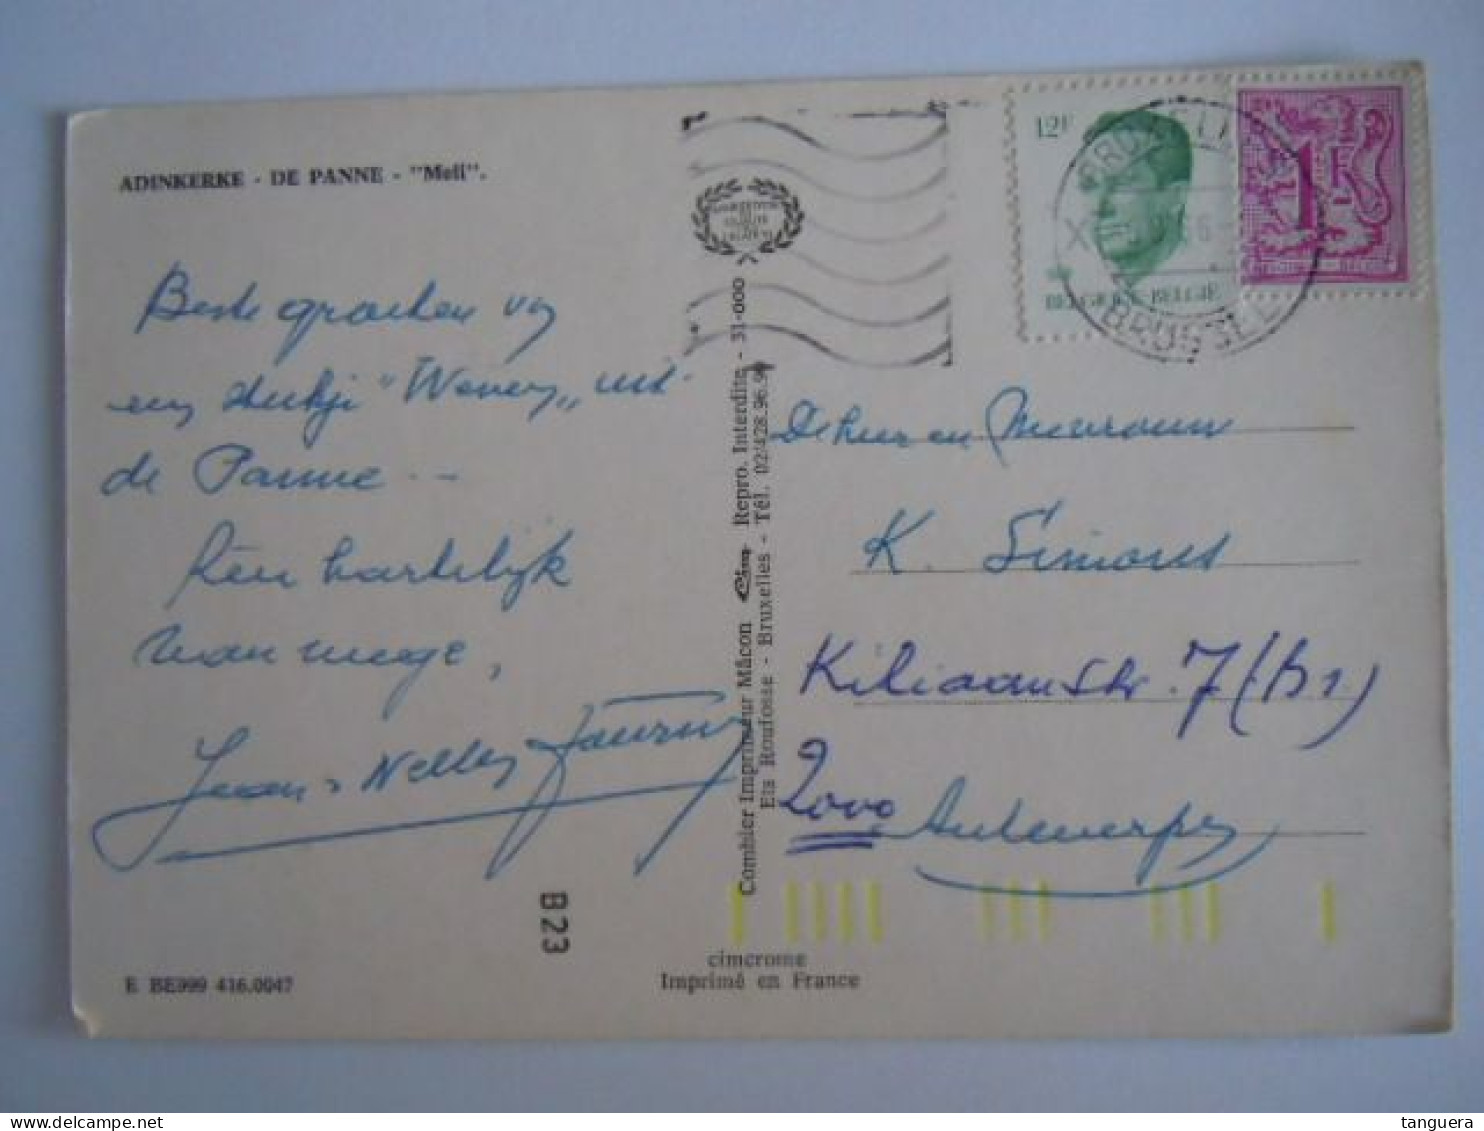 ADINKERKE - DE PANNE - "Meli".
Beste groeten van
een stukje "Wenen" uit
de Panne --
Heel hartelijk
vanwege,
Jean + Nelly
B23
E BE999 416.0047
Combier Imprimeur Mâcon Cim Repro. Interdite - 31-000
Ets Roufosse - Bruxelles - Tél. 02/428.96.9
cimcrome
Imprimé en France
12F
BELGIQUE BELGIE
1F
BELGIQUE BELGIE
BRUXELLES
BRUSSEL
De heer en Mevrouw
K. Simons
Kiliaanstr. 7 (B1)
2000 Antwerpen
tanguera